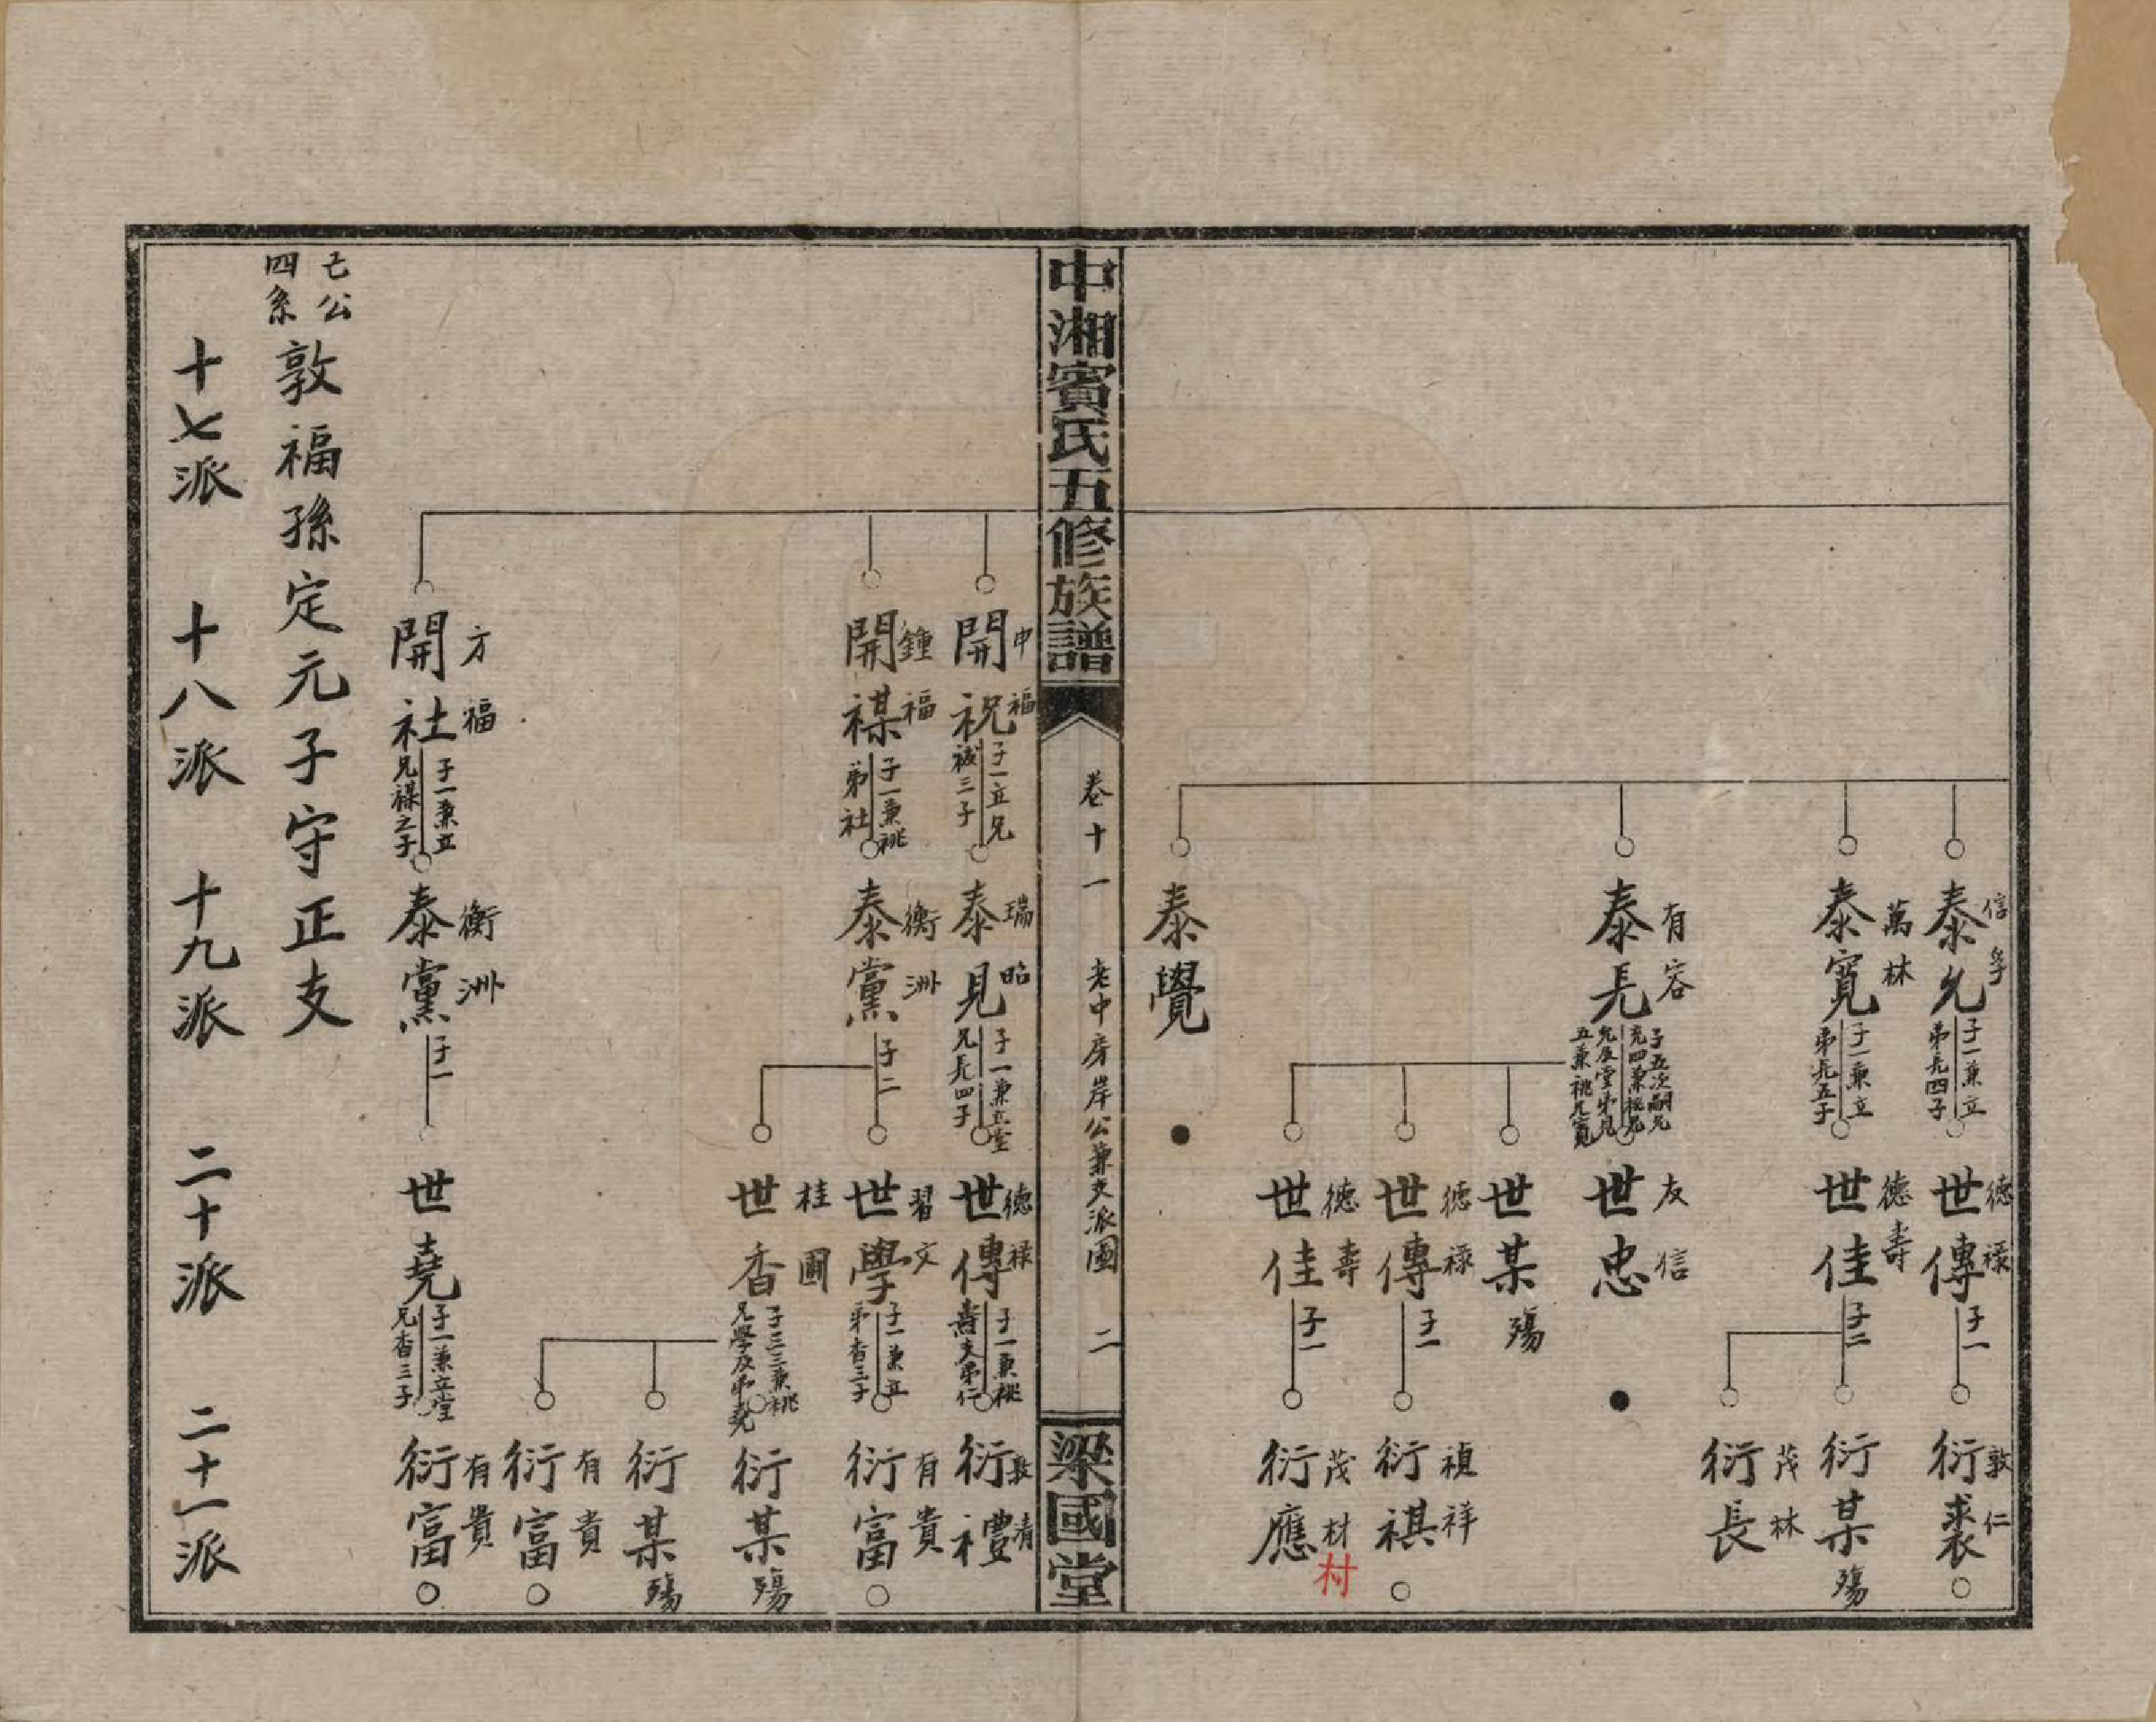 信孚
泰允
子一兼立
弟長四子
德祿
世傳
子一
敦仁
衍裘
萬林
泰寬
子一兼立
弟長五子
德壽
世佳
子二
衍某
殤
茂林
衍長
有容
泰長
子五次嗣兄
四兼桃
五兼祧兄寬
友信
世忠
世某
殤
德祿
世傳
子一
禎祥
衍祺
德壽
世佳
子一
茂材
村
衍應
泰覺
中湘賓氏五修族譜
卷十一
老中房岸公兼支派圖
二
梁國堂
申福
開祝
子一立兄
祓三子
瑞昭
泰見
子一兼立堂
兄長四子
德祿
世傳
子一兼祧
壽文弟仁
敦清
衍禮
鍾福
開禖
子一兼祧
弟社
衡洲
泰黨
子二
習文
世學
子一兼立
弟香三子
有貴
衍富
桂圃
世香
子三三兼祧
兄學及弟堯
衍某
殤
衍某
殤
有貴
衍富
方福
開社
子一兼立
兄禖之子
衡洲
泰黨
子一
世堯
子一兼立堂
兄香三子
有貴
衍富
七公
四系
敦福孫定元子守正支
十七派
十八派
十九派
二十派
二十一派